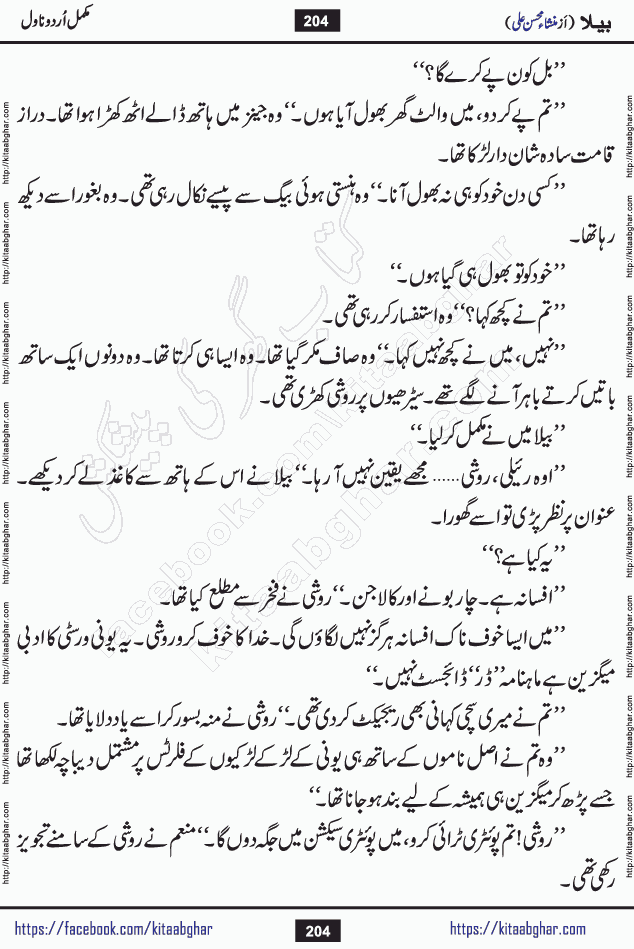 بیلا (از منشاء محسن علی) 204 مکمل اُردو ناول
’’بل کون پے کرے گا؟‘‘
’’تم پے کر دو، میں والٹ گھر بھول آیا ہوں۔‘‘ وہ جینز میں ہاتھ ڈالے اٹھ کھڑا ہوا تھا۔ دراز
قامت سادہ شان دار لڑکا تھا۔
’’کسی دن خود کو ہی نہ بھول آنا۔‘‘ وہ ہنستی ہوئی بیگ سے پیسے نکال رہی تھی۔ وہ بغور اسے دیکھ
رہا تھا۔
’’خود کو تو بھول ہی گیا ہوں۔‘‘
’’تم نے کچھ کہا؟‘‘ وہ استفسار کر رہی تھی۔
’’نہیں، میں نے کچھ نہیں کہا۔‘‘ وہ صاف مکر گیا تھا۔ وہ ایسا ہی کرتا تھا۔ وہ دونوں ایک ساتھ
باتیں کرتے باہر آنے لگے تھے۔ سیڑھیوں پر روشی کھڑی تھی۔
’’بیلا میں نے مکمل کر لیا۔‘‘
’’اوہ رئیلی، روشی...... مجھے یقین نہیں آ رہا۔‘‘ بیلا نے اس کے ہاتھ سے کاغذ لے کر دیکھے۔
عنوان پر نظر پڑی تو اسے گھورا۔
’’یہ کیا ہے؟‘‘
’’افسانہ ہے۔ چار بونے اور کالا جن۔‘‘ روشی نے فخر سے مطلع کیا تھا۔
’’میں ایسا خوف ناک افسانہ ہرگز نہیں لگاؤں گی۔ خدا کا خوف کرو روشی۔ یہ یونی ورسٹی کا ادبی
میگزین ہے ماہنامہ ’’ڈر‘‘ ڈائجسٹ نہیں۔‘‘
’’تم نے میری سچی کہانی بھی ریجیکٹ کر دی تھی۔‘‘ روشی نے منہ بسور کر اسے یاد دلایا تھا۔
’’وہ تم نے اصل ناموں کے ساتھ ہی یونی کے لڑکے لڑکیوں کے فلرٹس پر مشتمل دیباچہ لکھا تھا
جسے پڑھ کر میگزین ہی ہمیشہ کے لیے بند ہو جانا تھا۔‘‘
’’روشی! تم پوئٹری ٹرائی کرو، میں پوئٹری سیکشن میں جگہ دوں گا۔‘‘ منعم نے روشی کے سامنے تجویز
رکھی تھی۔
کتاب گھر کی پیشکش
facebook.com/kitaabghar
kitaabghar.com
http://kitaabghar.com http://kitaabghar.com http://kitaabghar.com http://kitaabghar.com http://kitaabghar.com http://kitaabghar.com http://kitaabghar.com http://kitaabghar.com
http://kitaabghar.com http://kitaabghar.com http://kitaabghar.com http://kitaabghar.com http://kitaabghar.com http://kitaabghar.com http://kitaabghar.com http://kitaabghar.com
https://facebook.com/kitaabghar 204 https://kitaabghar.com